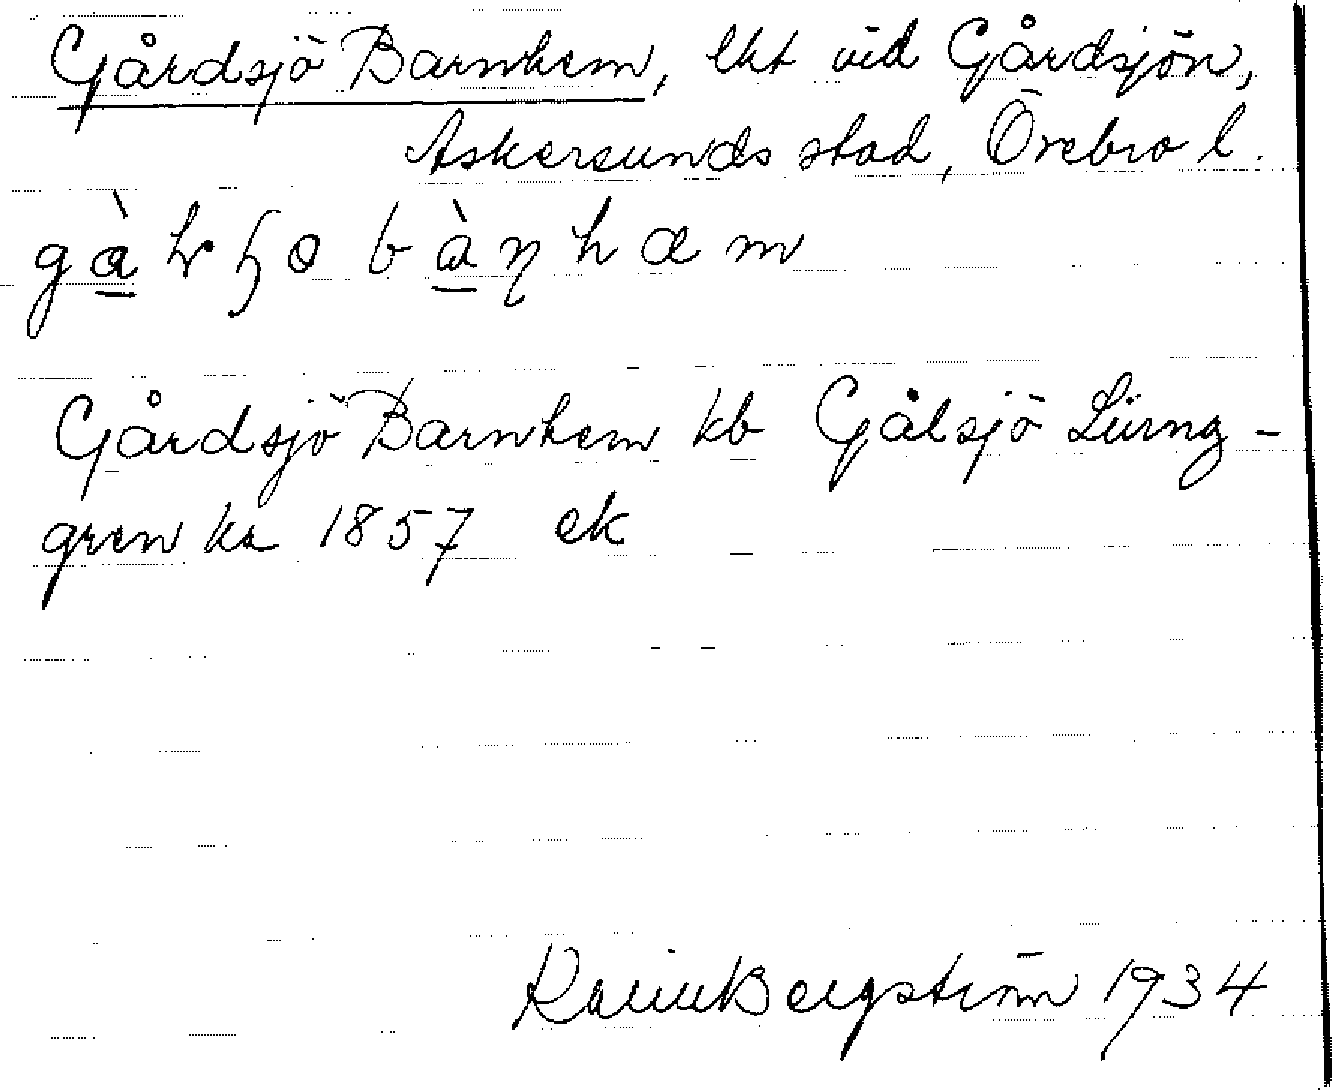 Gårdsjö Barnhem, lht vid Gårdsjön,
Askersunds stad, Örebro l.
Gårdsjö Barnhem kb Gålsjö Ljung-
gren ka 1857 ek
Karin Bergström 1934